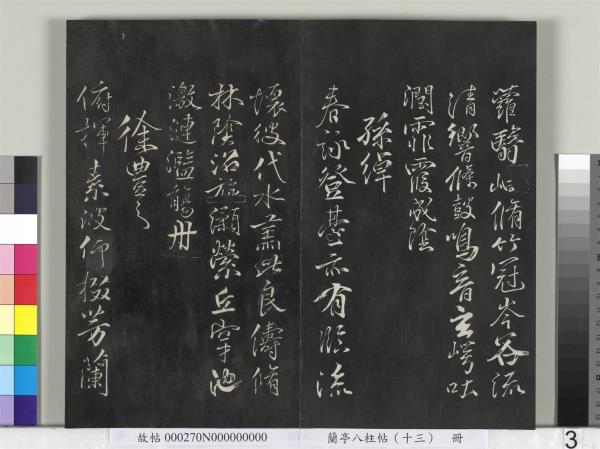 蘿翳岫脩竹冠岑谷流
清響條鼓鳴音玄崿吐
潤霏霞成陰
孫綽
春詠登臺亦有臨流
懷彼代水肅此良儔脩
林陰沼旋瀨縈丘穿池
激漣濫觴舟
徐豐之
俯揮素波仰掇芳蘭
故帖 000270N000000000
蘭亭八柱帖（十三） 冊
3